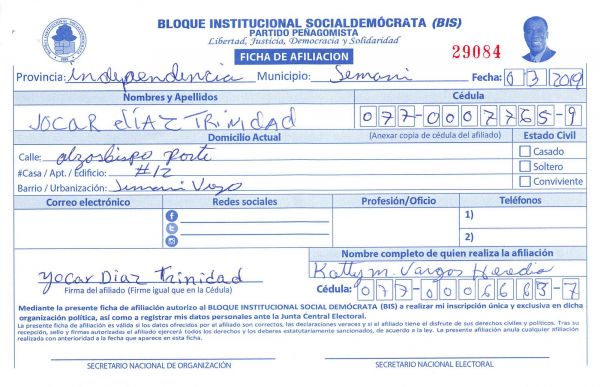 BLOQUE INSTITUCIONAL SOCIALDEMÓCRATA (BIS)
PARTIDO PEÑAGOMISTA
Libertad, Justicia, Democracia y Solidaridad
FICHA DE AFILIACION
29084
Provincia: Independencia Municipio: Fecha: 03 2019
Nombres y Apellidos Cédula
JOCAR díAZ TRINIDAD 077-0007765-9
Domicilio Actual (Anexar copia de cédula del afiliado) Estado Civil
Calle: Casado
#Casa / Apt. / Edificio: #12 Soltero
Barrio / Urbanización: Conviviente
Correo electrónico Redes sociales Profesión/Oficio Teléfonos
1)
2)
Nombre completo de quien realiza la afiliación
Yocar Diaz Trinidad Katty M. Vargas Heredia
Firma del afiliado (Firme igual que en la Cédula) Cédula: 077-0006663-7
Mediante la presente ficha de afiliación autorizo al BLOQUE INSTITUCIONAL SOCIAL DEMÓCRATA (BIS) a realizar mi inscripción única y exclusiva en dicha
organización política, así como a registrar mis datos personales ante la Junta Central Electoral.
La presente ficha de afiliación es válida si los datos ofrecidos por el afiliado son correctos, las declaraciones veraces y si el afiliado tiene el disfrute de sus derechos civiles y políticos. Tras su
recepción, sello y firmas autorizadas el afiliado ejercerá todos los derechos y los deberes estatutariamente sancionados, de acuerdo a la ley. La presente afiliación anula cualquier afiliación
realizada con anterioridad a la fecha que aparece en esta ficha.
SECRETARIO NACIONAL DE ORGANIZACIÓN SECRETARIO NACIONAL ELECTORAL